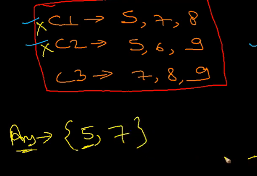 C1 → 5, 7, 8
C2 → 5, 6, 9
C3 → 7, 8, 9
Ans → {5, 7}